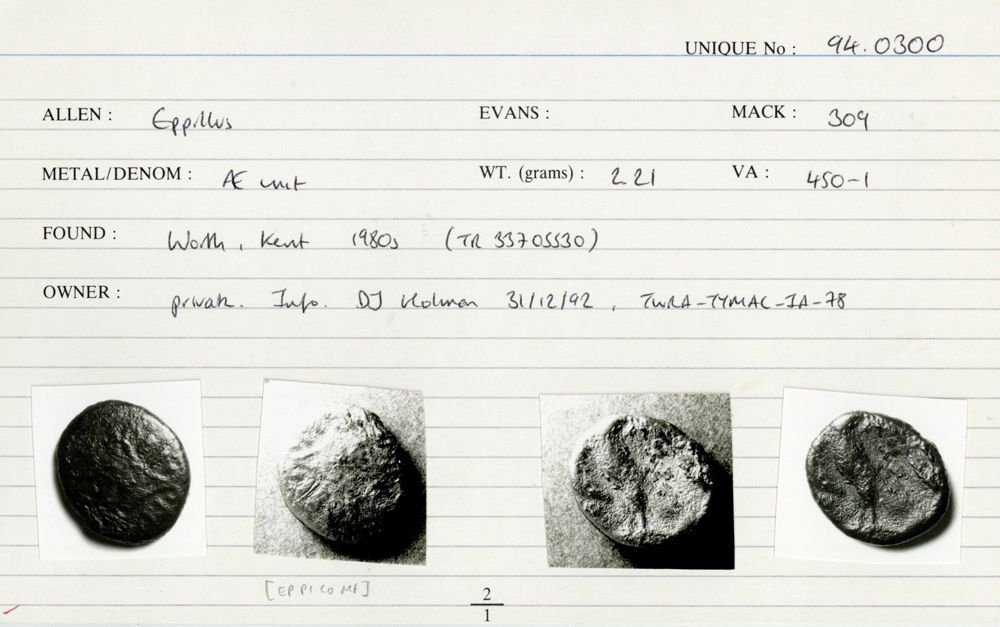 UNIQUE No : 94.0300
ALLEN : Eppillus EVANS : MACK : 309
METAL/DENOM : Æ unit WT. (grams) : 2.21 VA : 450-1
FOUND : Worth, Kent 1980s (TR 33705530)
OWNER : private. Info. DJ Holman 31/12/92, TWRA-TYMAC-IA-78
[EPPI COMF]
2
1